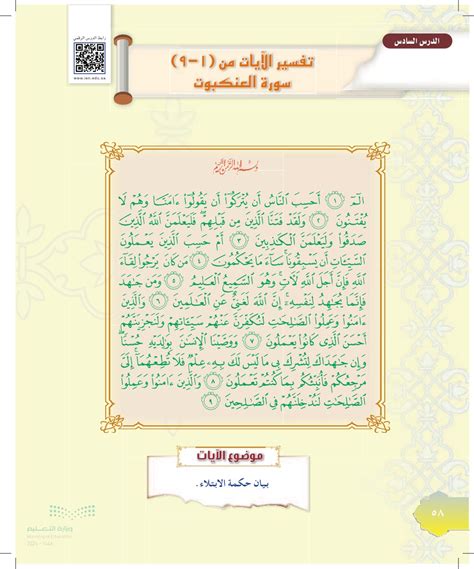 رابط الدرس الرقمي
www.ien.edu.sa
الدرس السادس
تفسير الآيات من (١-٩)
سورة العنكبوت
بِسْمِ اللَّهِ الرَّحْمَٰنِ الرَّحِيمِ
الٓمٓ ١ أَحَسِبَ النَّاسُ أَن يُتْرَكُوٓا۟ أَن يَقُولُوٓا۟ ءَامَنَّا وَهُمْ لَا
يُفْتَنُونَ ٢ وَلَقَدْ فَتَنَّا الَّذِينَ مِن قَبْلِهِمْ فَلَيَعْلَمَنَّ اللَّهُ الَّذِينَ
صَدَقُوا۟ وَلَيَعْلَمَنَّ الْكَٰذِبِينَ ٣ أَمْ حَسِبَ الَّذِينَ يَعْمَلُونَ
السَّيِّـَٔاتِ أَن يَسْبِقُونَا سَآءَ مَا يَحْكُمُونَ ٤ مَن كَانَ يَرْجُوا۟ لِقَآءَ
اللَّهِ فَإِنَّ أَجَلَ اللَّهِ لَآتٍ وَهُوَ السَّمِيعُ الْعَلِيمُ ٥ وَمَن جَٰهَدَ
فَإِنَّمَا يُجَٰهِدُ لِنَفْسِهِۦٓ إِنَّ اللَّهَ لَغَنِىٌّ عَنِ الْعَٰلَمِينَ ٦ وَالَّذِينَ
ءَامَنُوا۟ وَعَمِلُوا۟ الصَّٰلِحَٰتِ لَنُكَفِّرَنَّ عَنْهُمْ سَيِّـَٔاتِهِمْ وَلَنَجْزِيَنَّهُمْ
أَحْسَنَ الَّذِى كَانُوا۟ يَعْمَلُونَ ٧ وَوَصَّيْنَا الْإِنسَٰنَ بِوَٰلِدَيْهِ حُسْنًا
وَإِن جَٰهَدَاكَ لِتُشْرِكَ بِى مَا لَيْسَ لَكَ بِهِۦ عِلْمٌ فَلَا تُطِعْهُمَآ إِلَىَّ
مَرْجِعُكُمْ فَأُنَبِّئُكُم بِمَا كُنتُمْ تَعْمَلُونَ ٨ وَالَّذِينَ ءَامَنُوا۟ وَعَمِلُوا۟
الصَّٰلِحَٰتِ لَنُدْخِلَنَّهُمْ فِى الصَّٰلِحِينَ ٩
موضوع الآيات
بيان حكمة الابتلاء.
٥٨
وزارة التعليم
Ministry of Education